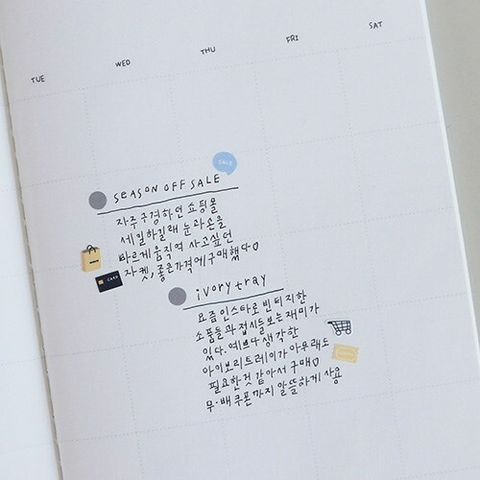 TUE WED THU FRI SAT
SALE
SEASON OFF SALE
자주 구경하던 쇼핑몰
세일하길래 눈과 손을
바르게 움직여 사고싶던
자켓, 좋은가격에 구매했다♡
CARD
ivory tray
요즘 인스타로 빈티지한
소품들과 접시들 보는 재미가
있다. 예쁘다 생각한
아이보리 트레이가 아무래도
필요한것 같아서 구매♡
무·배 쿠폰까지 알뜰하게 사용